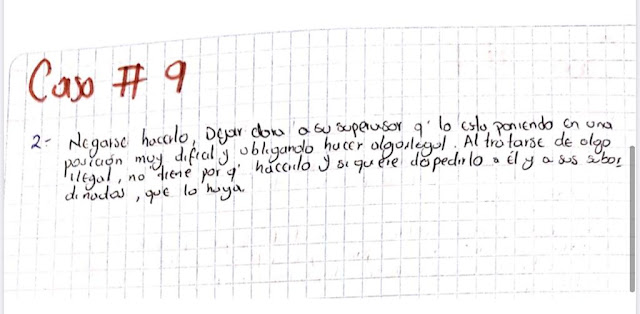 Caso # 9
2- Negarse hacerlo, Dejar claro a su supervisor q' lo esta poniendo en una
posición muy dificil y obligando hacer algo ilegal. Al tratarse de algo
ilegal, no tiene por q' hacerlo y si quiere despedirlo a él y a sus subor
dinados, que lo haya.